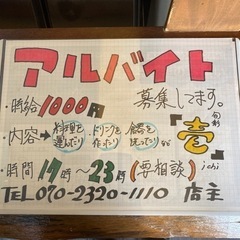 アルバイト
・時給1000円 募集してます。
・内容→ 料理を運んだり ドリンクを作ったり 食器を洗ったり など
旬彩
『壱』
ichi
・時間 17時〜23時(要相談)
TEL 070-2320-1110 店主